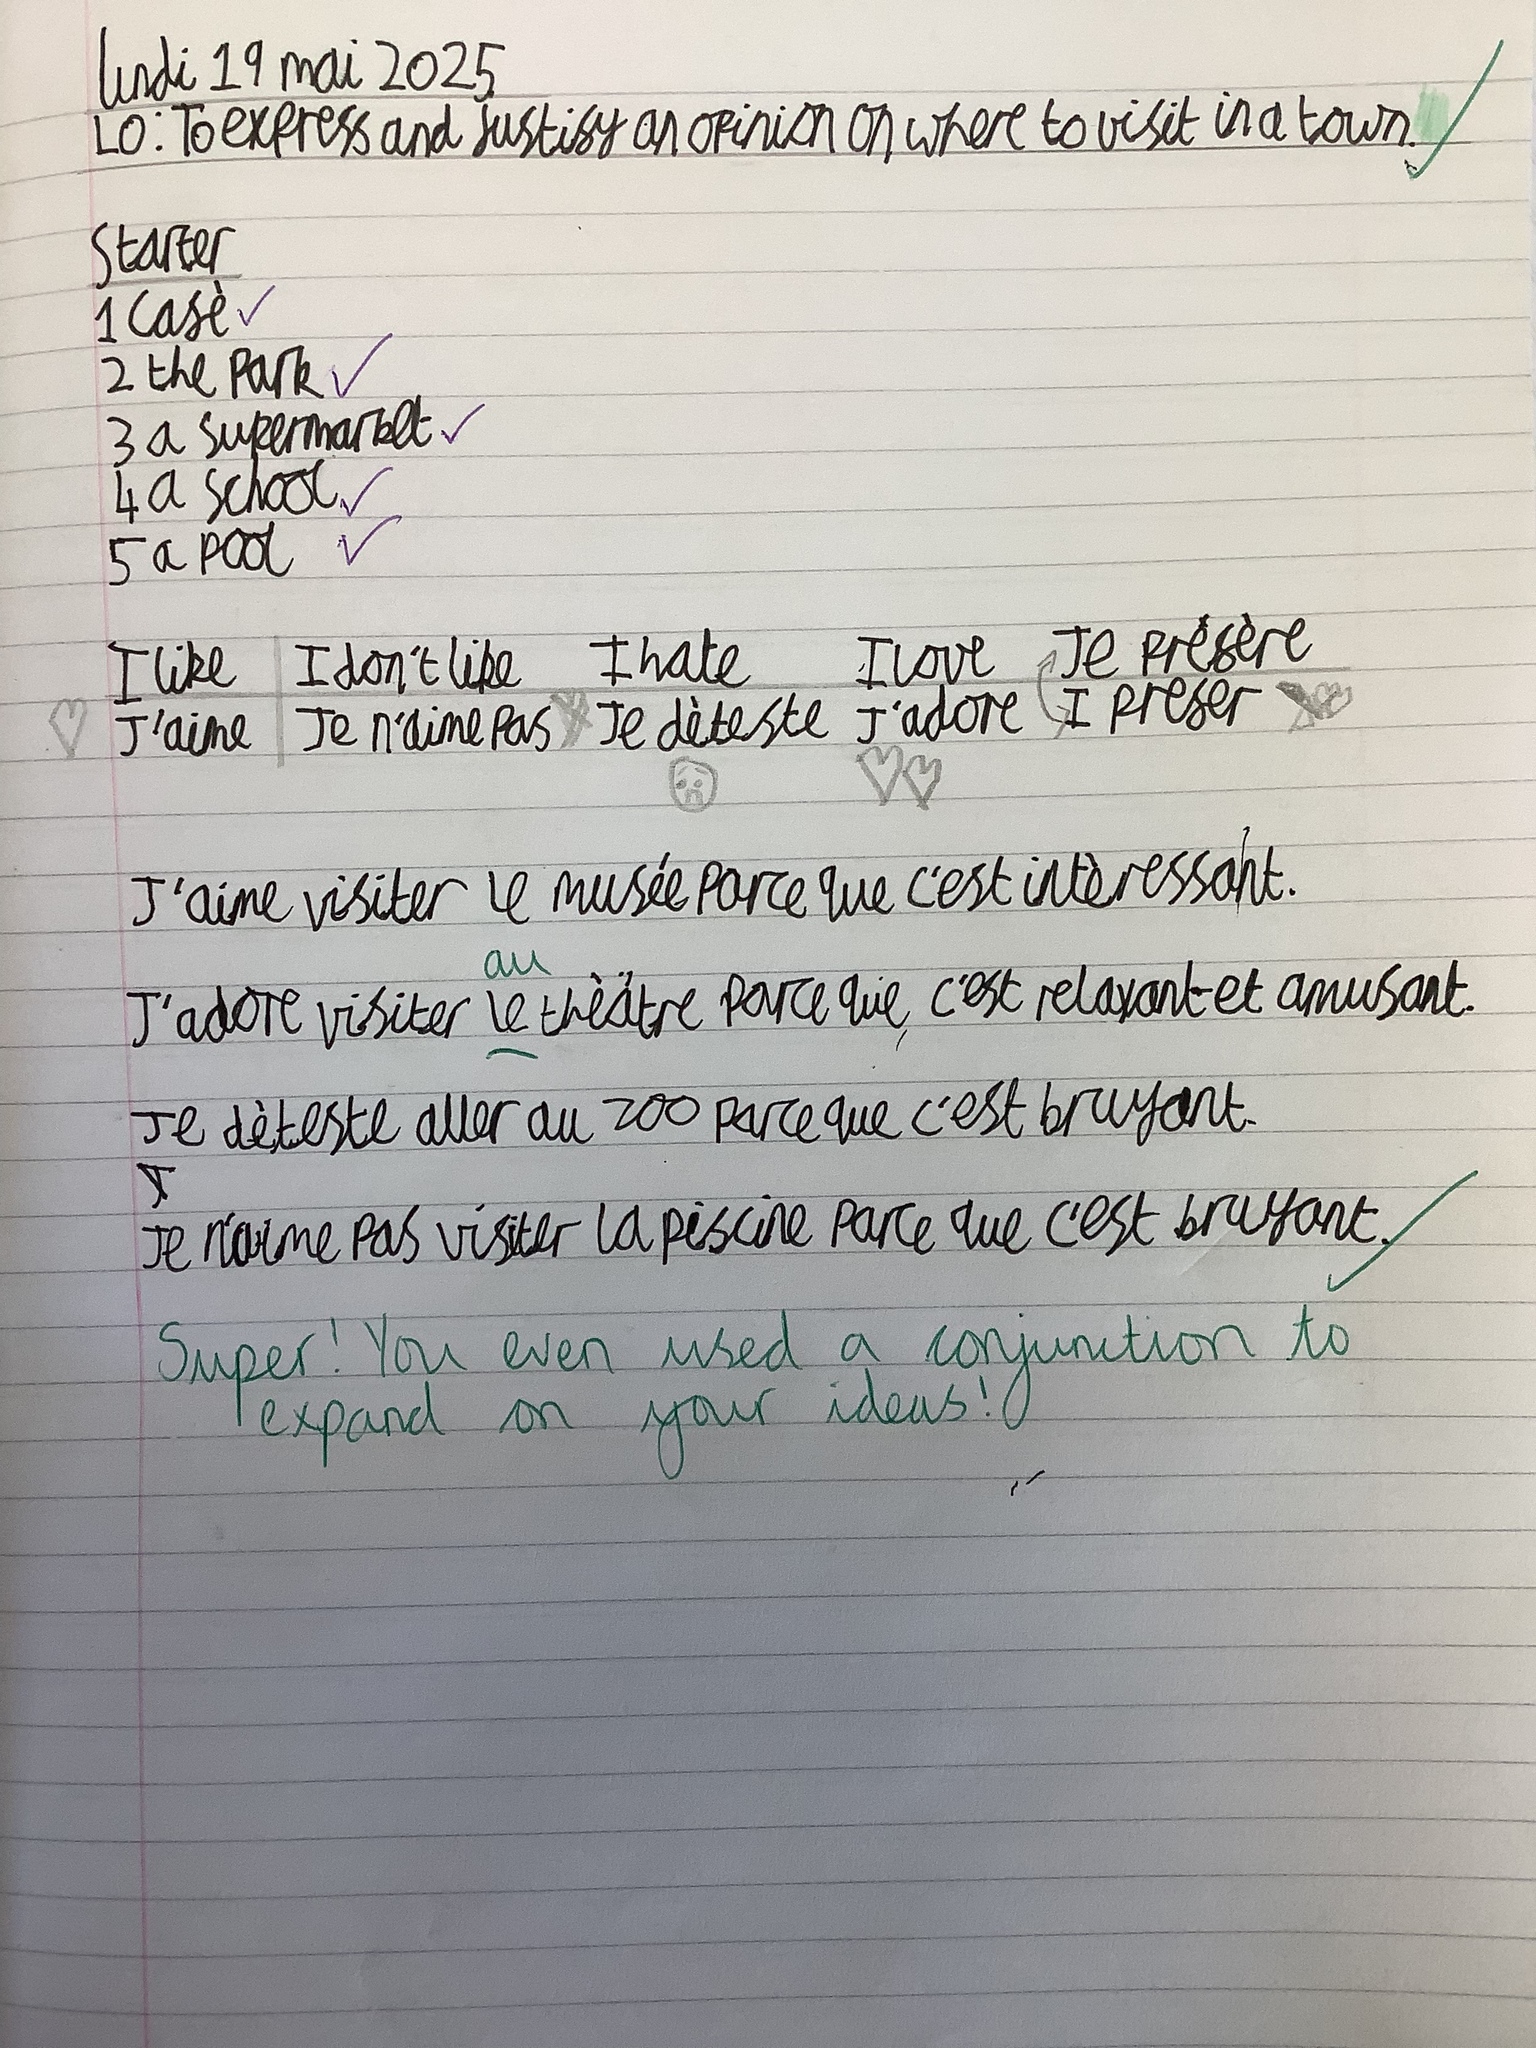 lundi 19 mai 2025
LO: To express and justify an opinion on where to visit in a town.
Starter
1 Cafè
2 the park
3 a supermarket
4 a school
5 a pool
I like I don't like I hate I love Je préfère
J'aime Je n'aime pas Je dèteste J'adore I prefer
J'aime visiter le musée parce que c'est intèressant.
au
J'adore visiter le thèätre parce que, c'est relaxant et amusant.
Je dèteste aller au zoo parce que c'est bruyant.
Je n'aime pas visiter la piscine parce que c'est bruyant.
Super! You even used a conjunction to
expand on your ideas!